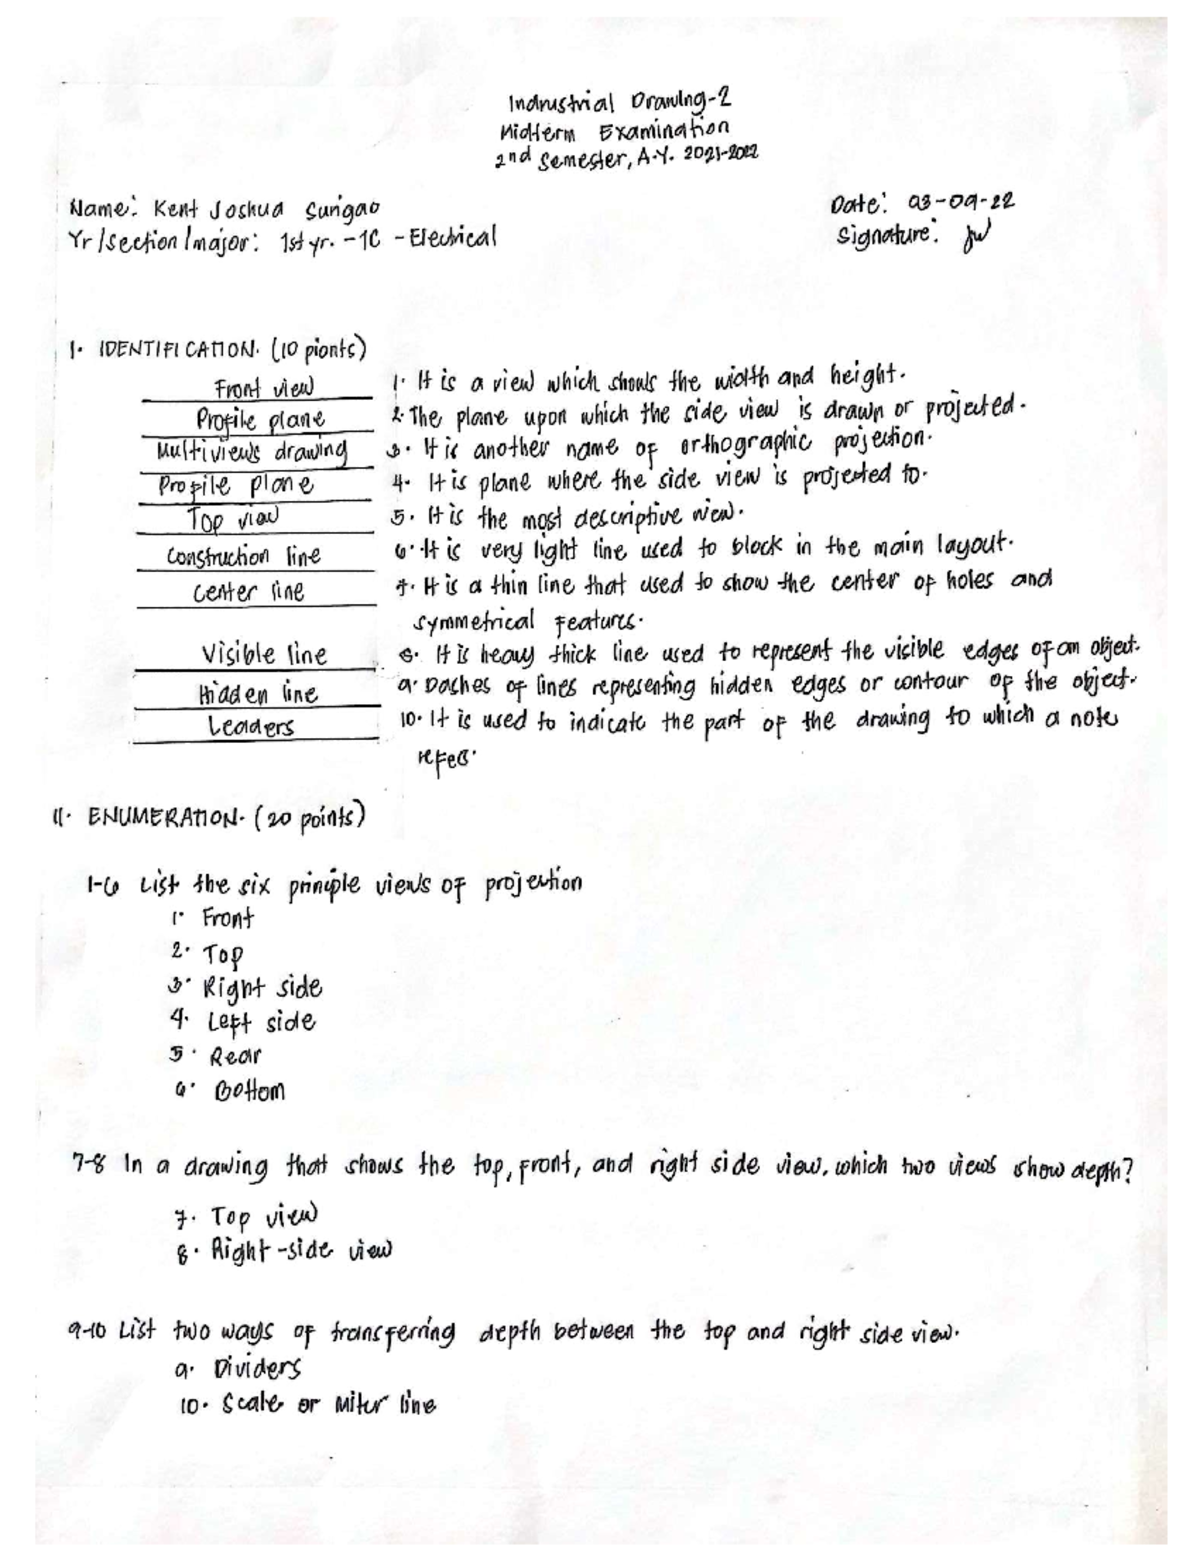 Indrustrial Drawing-2
Midterm Examination
2nd Semester, A.Y. 2021-2022
Name: Kent Joshua Surigao
Date: 03-09-22
Yr/section/major: 1st yr. - 1C - Electrical
Signature:
I. IDENTIFICATION. (10 pionts)
Front view 1. It is a view which shows the width and height.
Profile plane 2. The plane upon which the side view is drawn or projected.
Multiviews drawing 3. It is another name of orthographic projection.
Profile plane 4. It is plane where the side view is projected to.
Top view 5. It is the most descriptive view.
construction line 6. It is very light line used to block in the main layout.
center line 7. It is a thin line that used to show the center of holes and
symmetrical features.
Visible line 8. It is heavy thick line used to represent the visible edges of an object.
Hidden line 9. Dashes of lines representing hidden edges or contour of the object.
Leaders 10. It is used to indicate the part of the drawing to which a note
refers.
II. ENUMERATION. (20 points)
1-6 List the six principle views of projection
1. Front
2. Top
3. Right side
4. Left side
5. Rear
6. Bottom
7-8 In a drawing that shows the top, front, and right side view, which two views show depth?
7. Top view
8. Right-side view
9-10 List two ways of transferring depth between the top and right side view.
9. Dividers
10. Scale or Miter line